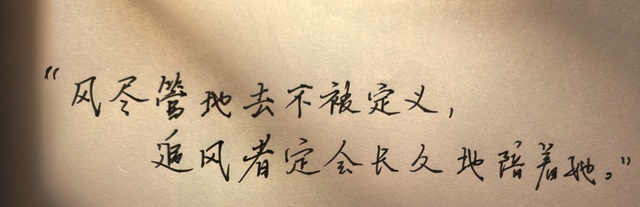 “风尽管地去不被定义，
追风者定会长久地陪着她。”